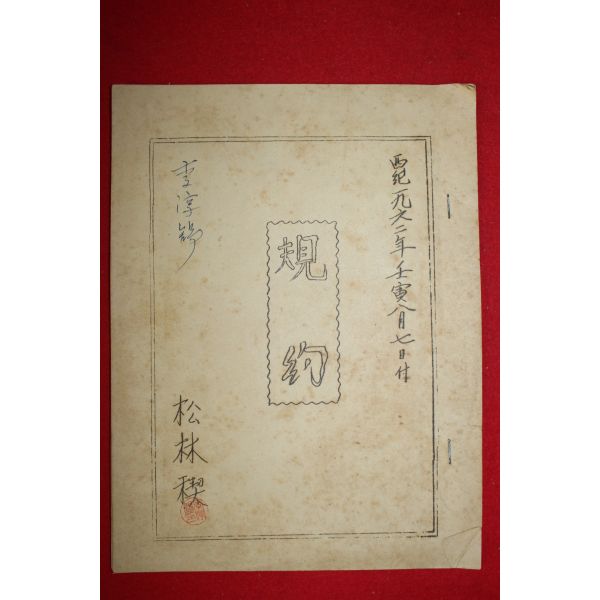 西紀一九六二年壬寅八月七日付
規約
李淳
松林稧